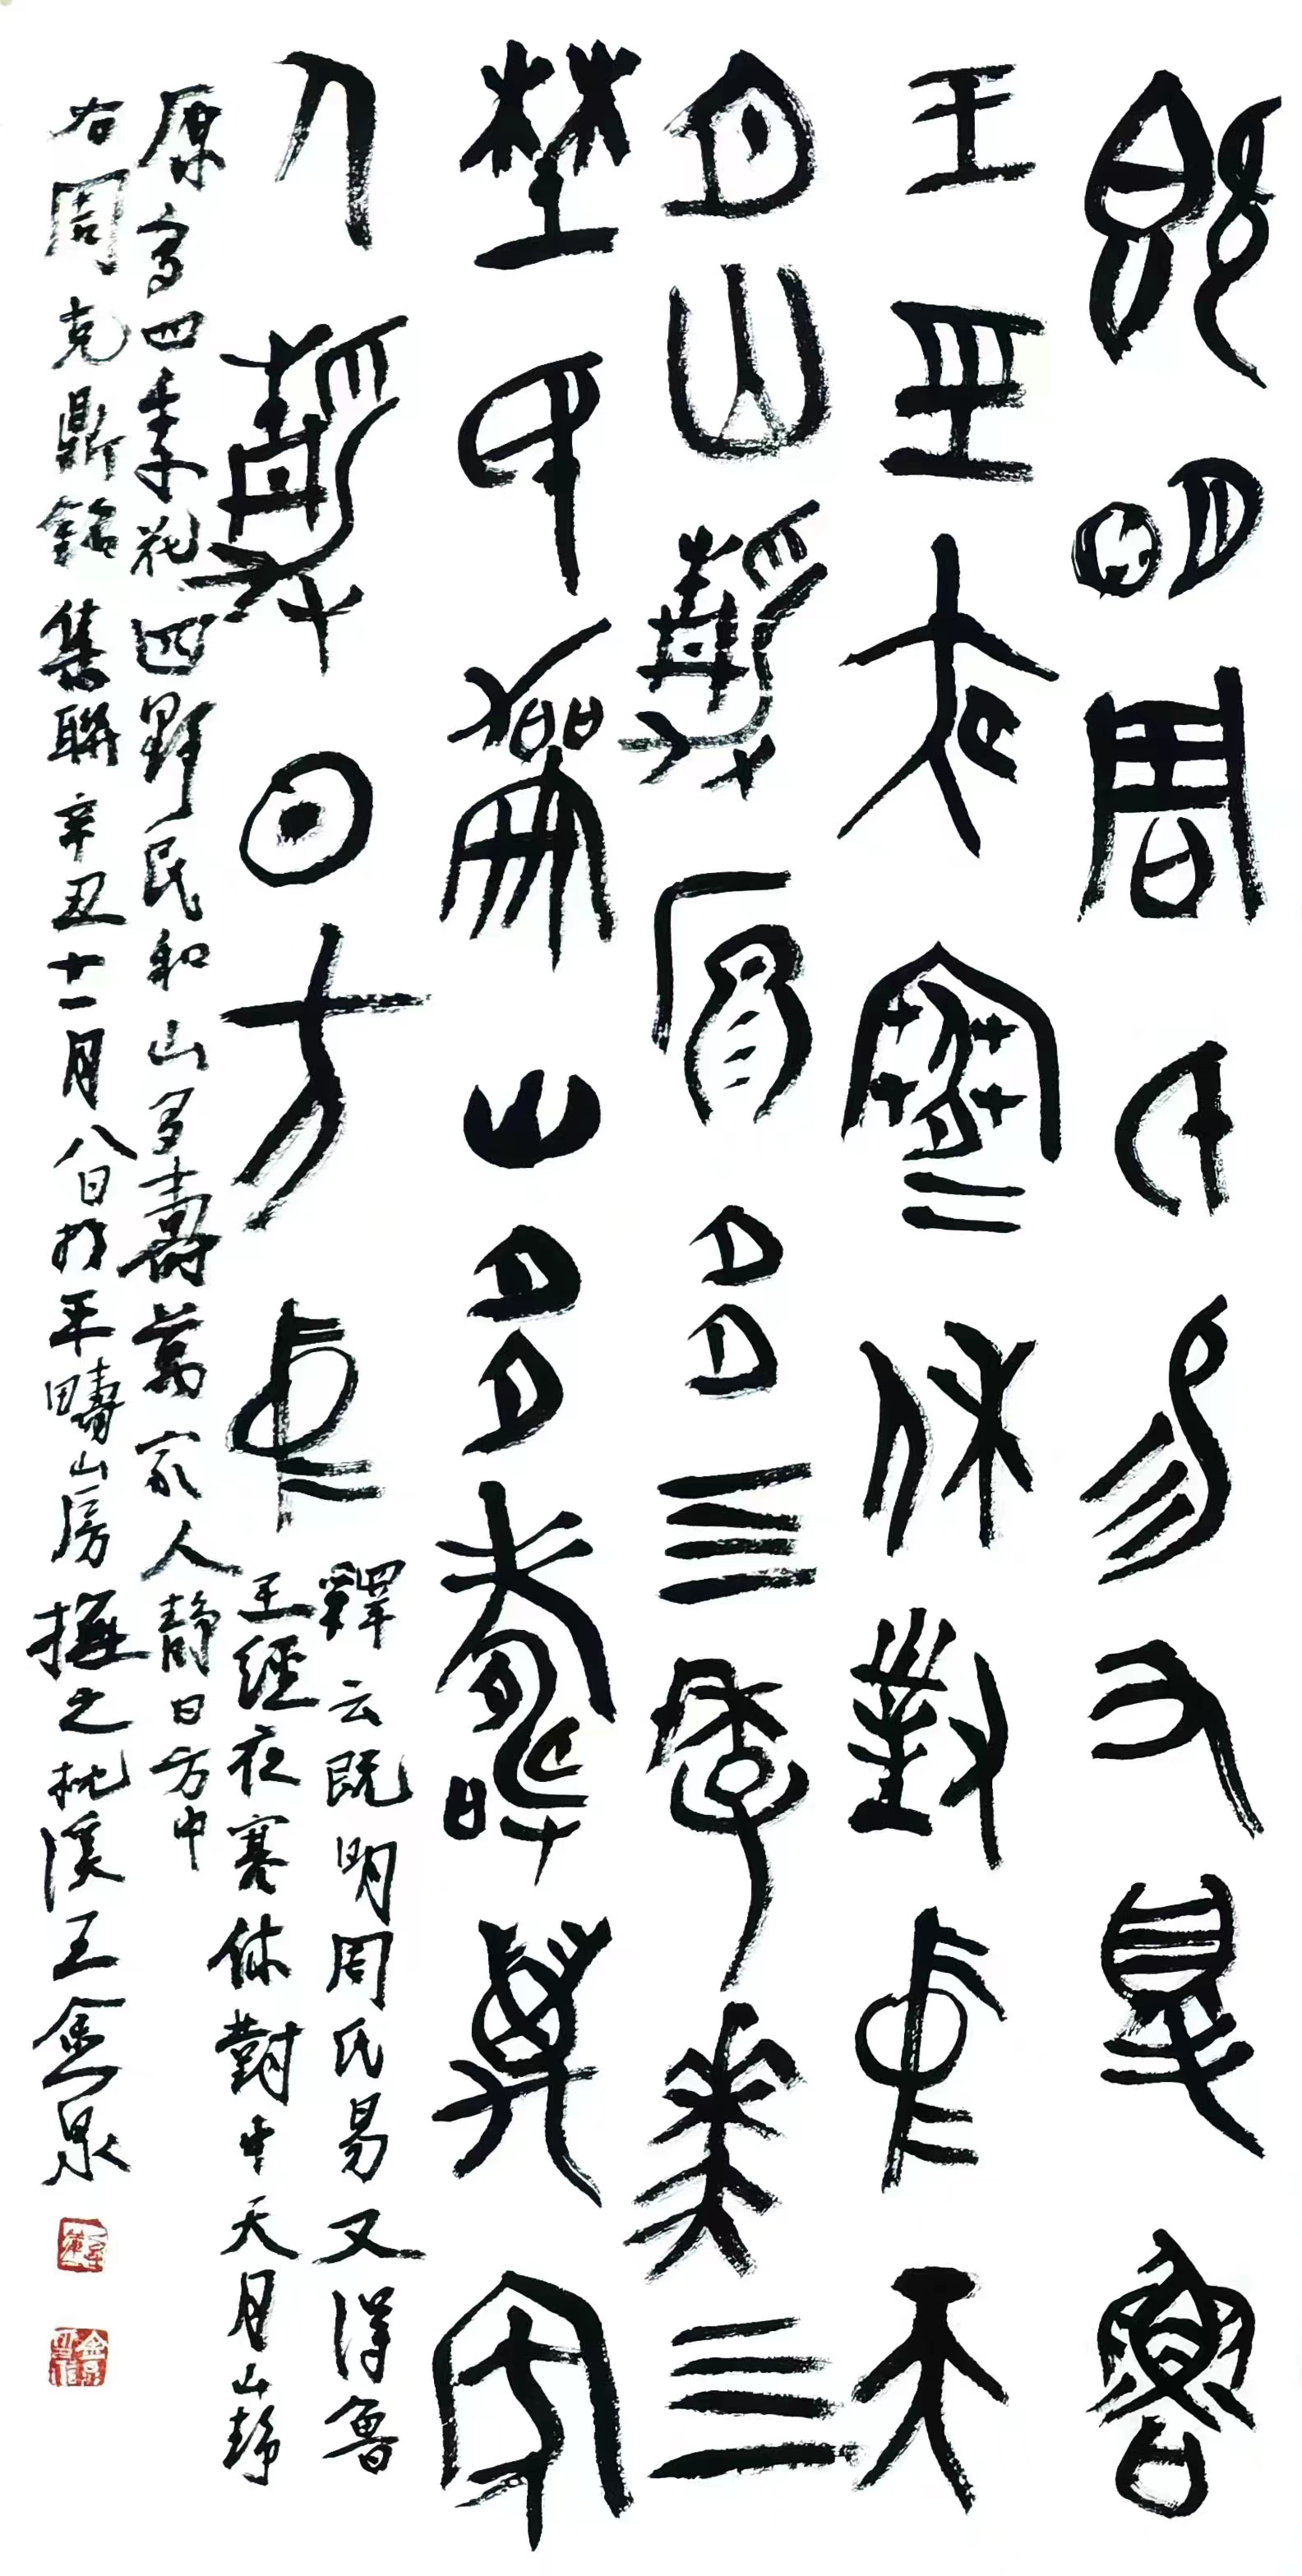 既明周氏易又得魯
王巠夜寒休對中天
月山靜原多四季華四
埜民龢山多壽萬家
人靜日方中
釋云既明周氏易又得魯
王經夜寒休對中天月山靜
原多四季花四野民和山多壽萬家人靜日方中
右周克鼎銘集聯辛丑十一月八日於平疇山房撫之枕溪王金泉